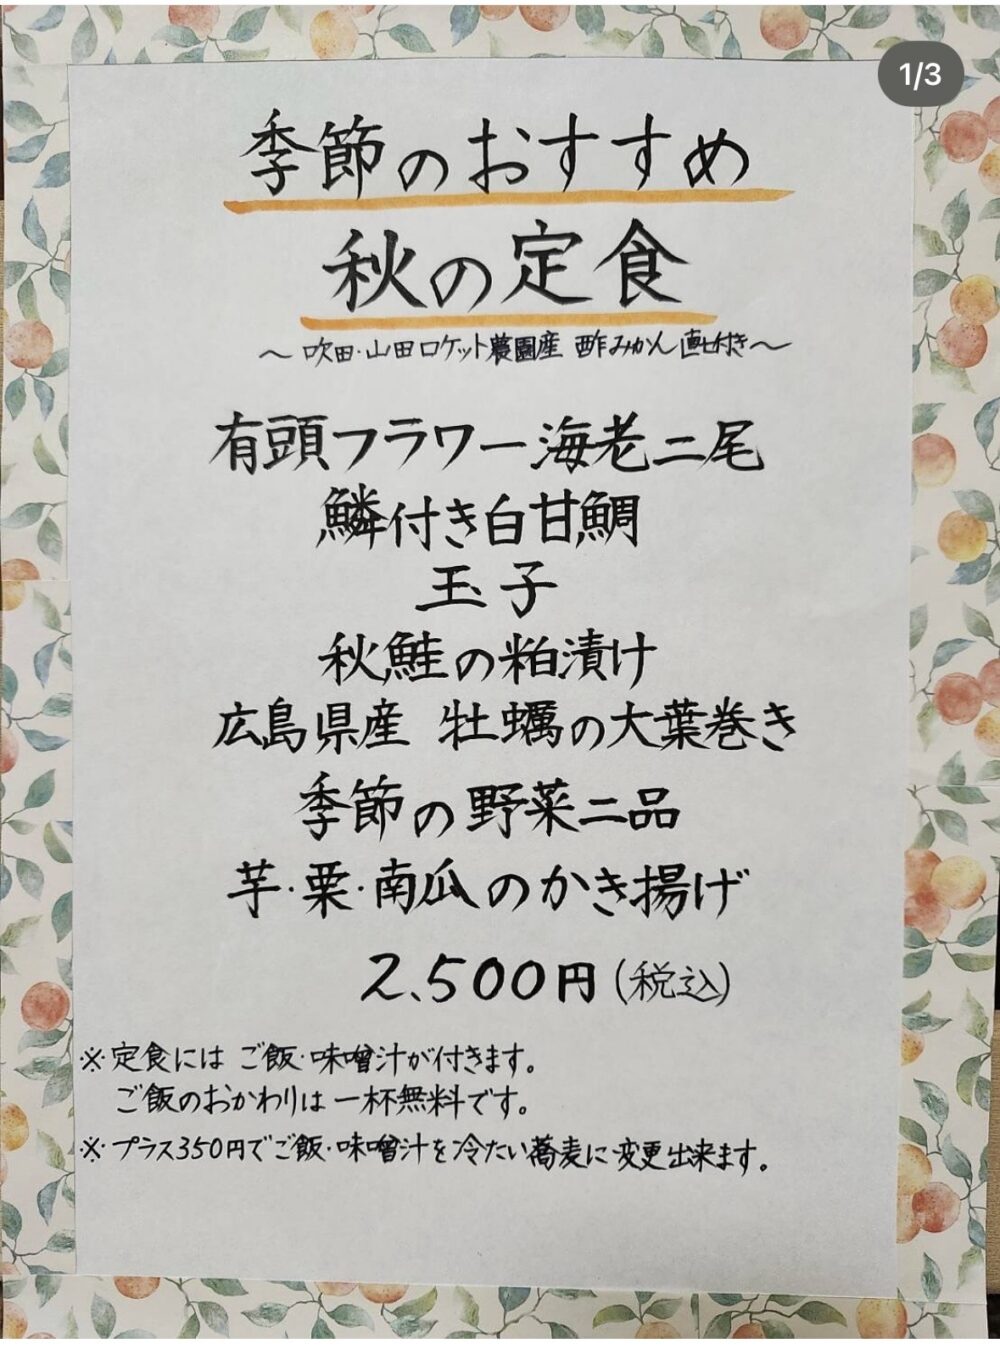 1/3
季節のおすすめ
秋の定食
～吹田・山田ロケット農園産 酢みかん直七付き～
有頭フラワー海老二尾
鱗付き白甘鯛
玉子
秋鮭の粕漬け
広島県産 牡蠣の大葉巻き
季節の野菜二品
芋・栗・南瓜のかき揚げ
2,500円(税込)
※定食には ご飯・味噌汁が付きます。
ご飯のおかわりは一杯無料です。
※プラス350円でご飯・味噌汁を冷たい蕎麦に変更出来ます。